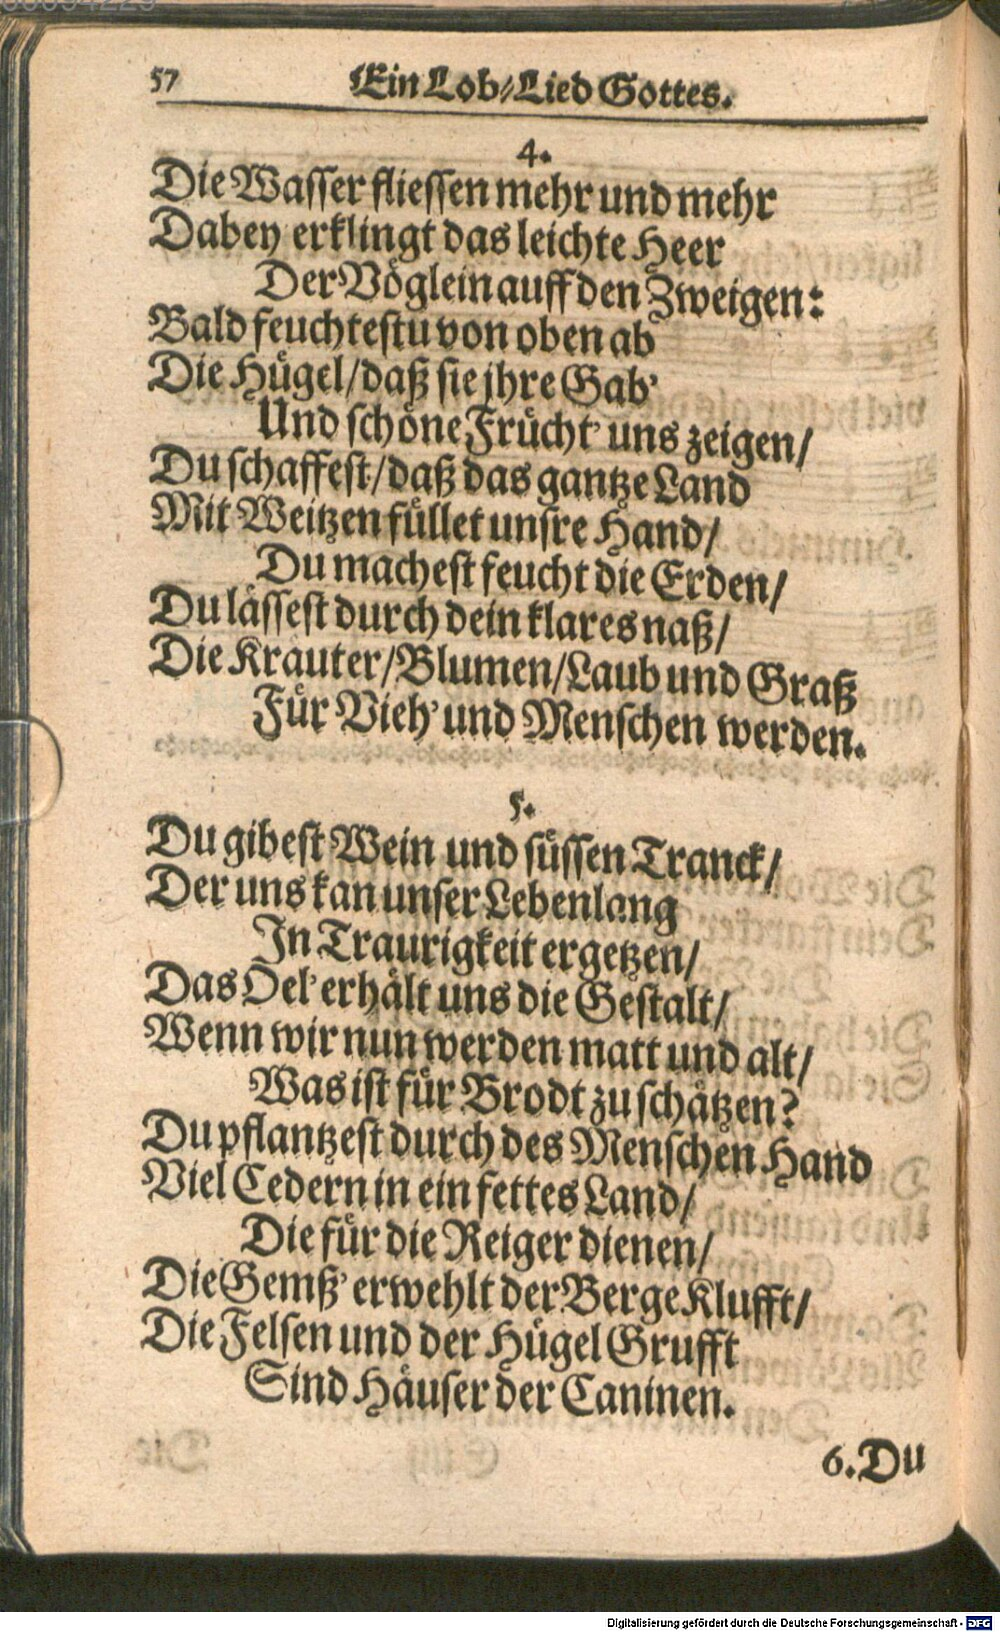 57 Ein Lob-Lied Gottes.
4.
Die Wasser fliessen mehr und mehr
Dabey erklingt das leichte Heer
Der Vöglein auff den Zweigen:
Bald feuchtestu von oben ab
Die Hügel/daß sie jhre Gab'
Und schöne Frücht' uns zeigen/
Du schaffest/daß das gantze Land
Mit Weitzen füllet unsre Hand/
Du machest feucht die Erden/
Du lässest durch dein klares naß/
Die Kräuter/Blumen/Laub und Graß
Für Vieh' und Menschen werden.
5.
Du gibest Wein und süssen Tranck/
Der uns kan unser Lebenlang
In Traurigkeit ergetzen/
Das Oel' erhält uns die Gestalt/
Wenn wir nun werden matt und alt/
Was ist für Brodt zu schätzen?
Du pflantzest durch des Menschen Hand
Viel Cedern in ein fettes Land/
Die für die Reiger dienen/
Die Gemß' erwehlt der Berge Klufft/
Die Felsen und der Hügel Grufft
Sind Häuser der Caninen.
6. Du
Digitalisierung gefördert durch die Deutsche Forschungsgemeinschaft - DFG